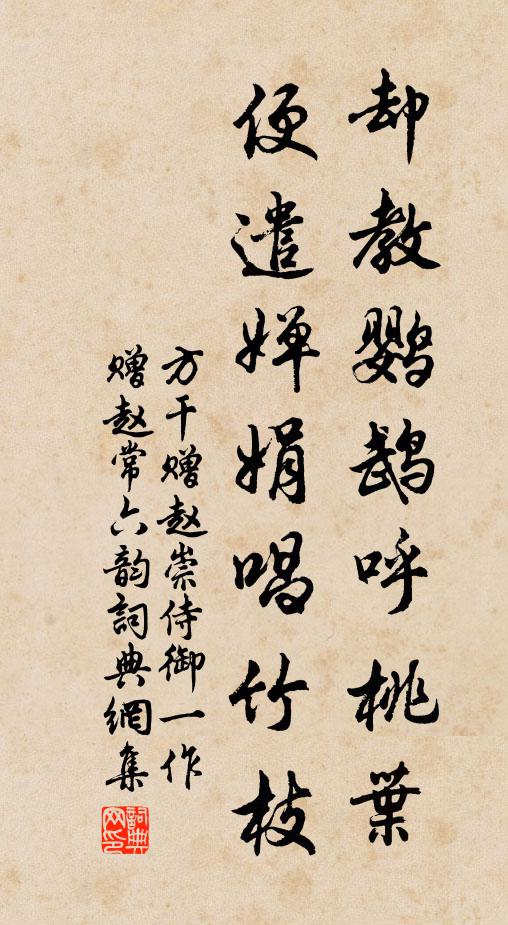 却教鹦鹉呼桃葉
便遣婵娟唱竹枝
方干赠赵崇侍御一作
赠赵常六韵詞典網集
詞典网印